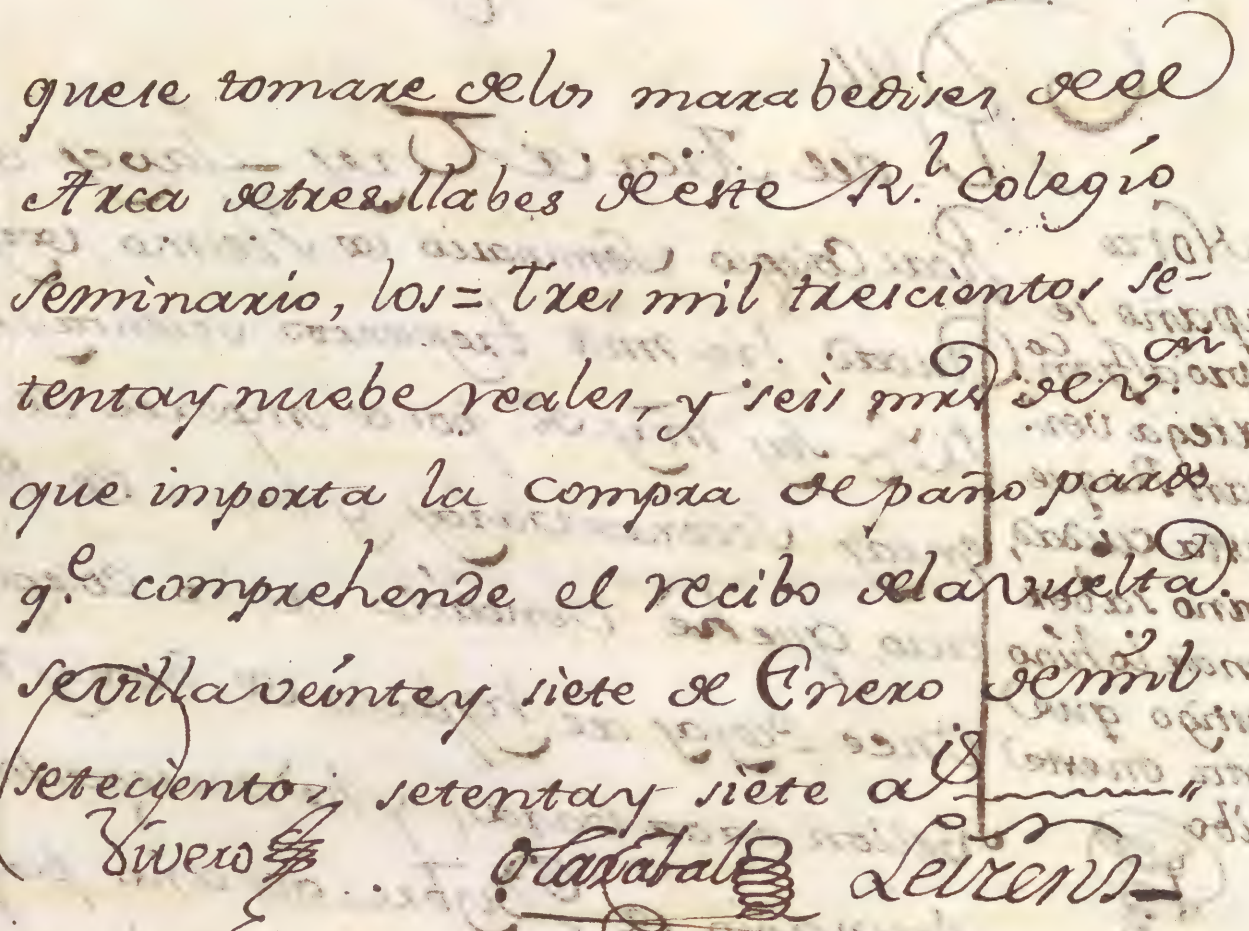 que se tomare de los marabedises de el
Arca de tres llabes de este R.l Colegio
seminario, los = Tres mil trescientos se-
tenta y nuebe reales, y seis mrs de v.on
que importa la compra de paño pardo
q.e comprehende el recibo de la vuelta.
sevilla veinte y siete de Enero de mil
setecientos setenta y siete as
Vivero Olazabal Leirens